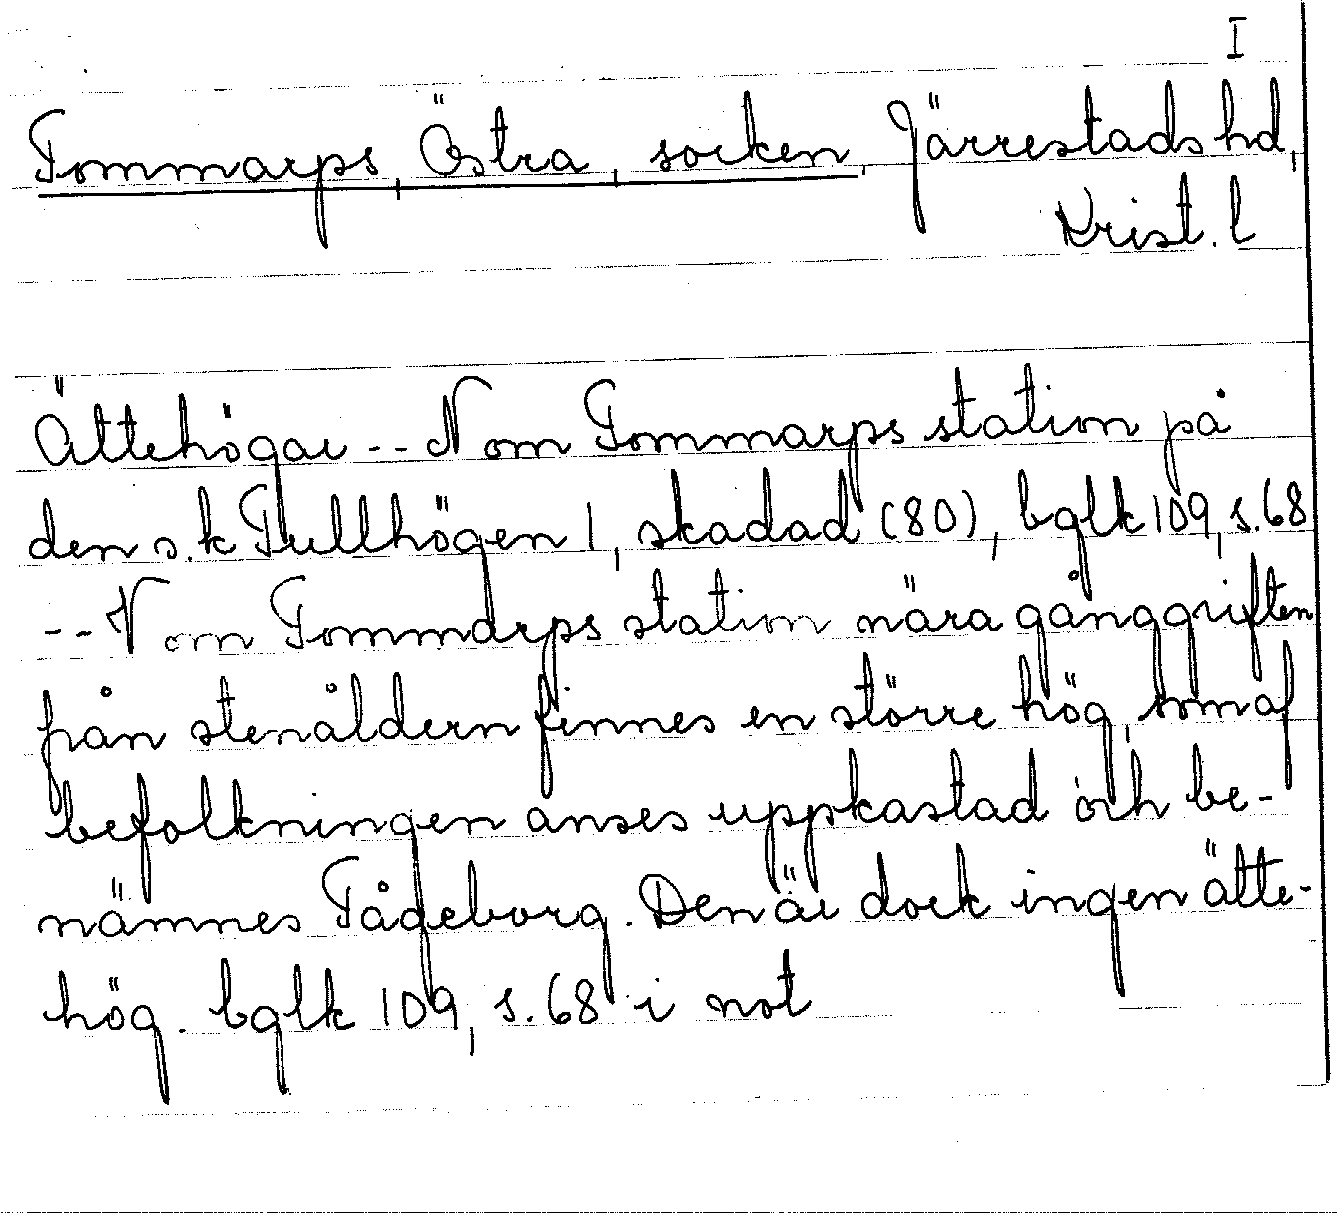 I
Tommarps, Östra, socken, Järrestads hd,
Krist. l
Ättehögar -- N om Tommarps station på
den s.k Tullhögen 1, skadad (80), bglk 109, s.68
-- N om Tommarps station nära gånggriften
från stenåldern finnes en större hög, som af
befolkningen anses uppkastad och be-
nämnes Tågeborg. Den är dock ingen ätte-
hög. bglk 109, s.68 i not